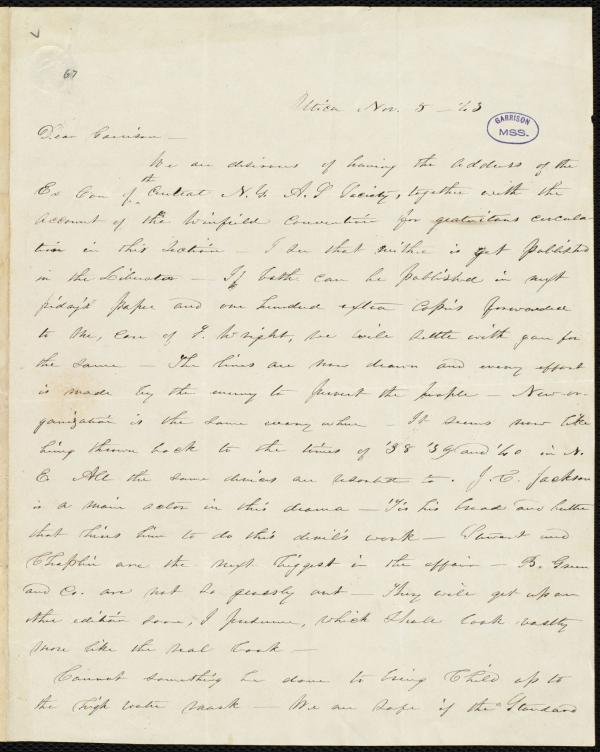 67
Utica Nov. 5 - 43
GARRISON
MSS.
Dear Garrison -
We are desirous of having the Address of the
Ex Com of the Central N. Y. A. S Society, together with the
account of the Winfield Convention for gratuitous circula-
tion in this section - I see that neither is yet published
in the Liberator - If both can be published in next
friday's paper and one hundred extra copies forwarded
to me, care of J. Wright, we will settle with you for
the same - The lines are now drawn and every effort
is made by the enemy to pervert the people - New or-
ganization is the same everywhere - It seems now like
being thrown back to the times of '38 '39 and '40 in N.
E. All the same devices are resorted to. J. C. Jackson
is a main actor in this drama - 'Tis his bread and butter
that hires him to do this devil's work - Stewart and
Chaplin are the next biggest in the affair - B. Green
and Co. are not so grossly out - They will get up an
other edition soon, I presume, which shall look vastly
more like the real book -
Cannot something be done to bring Child up to
the high water mark - We are safe if the Standard